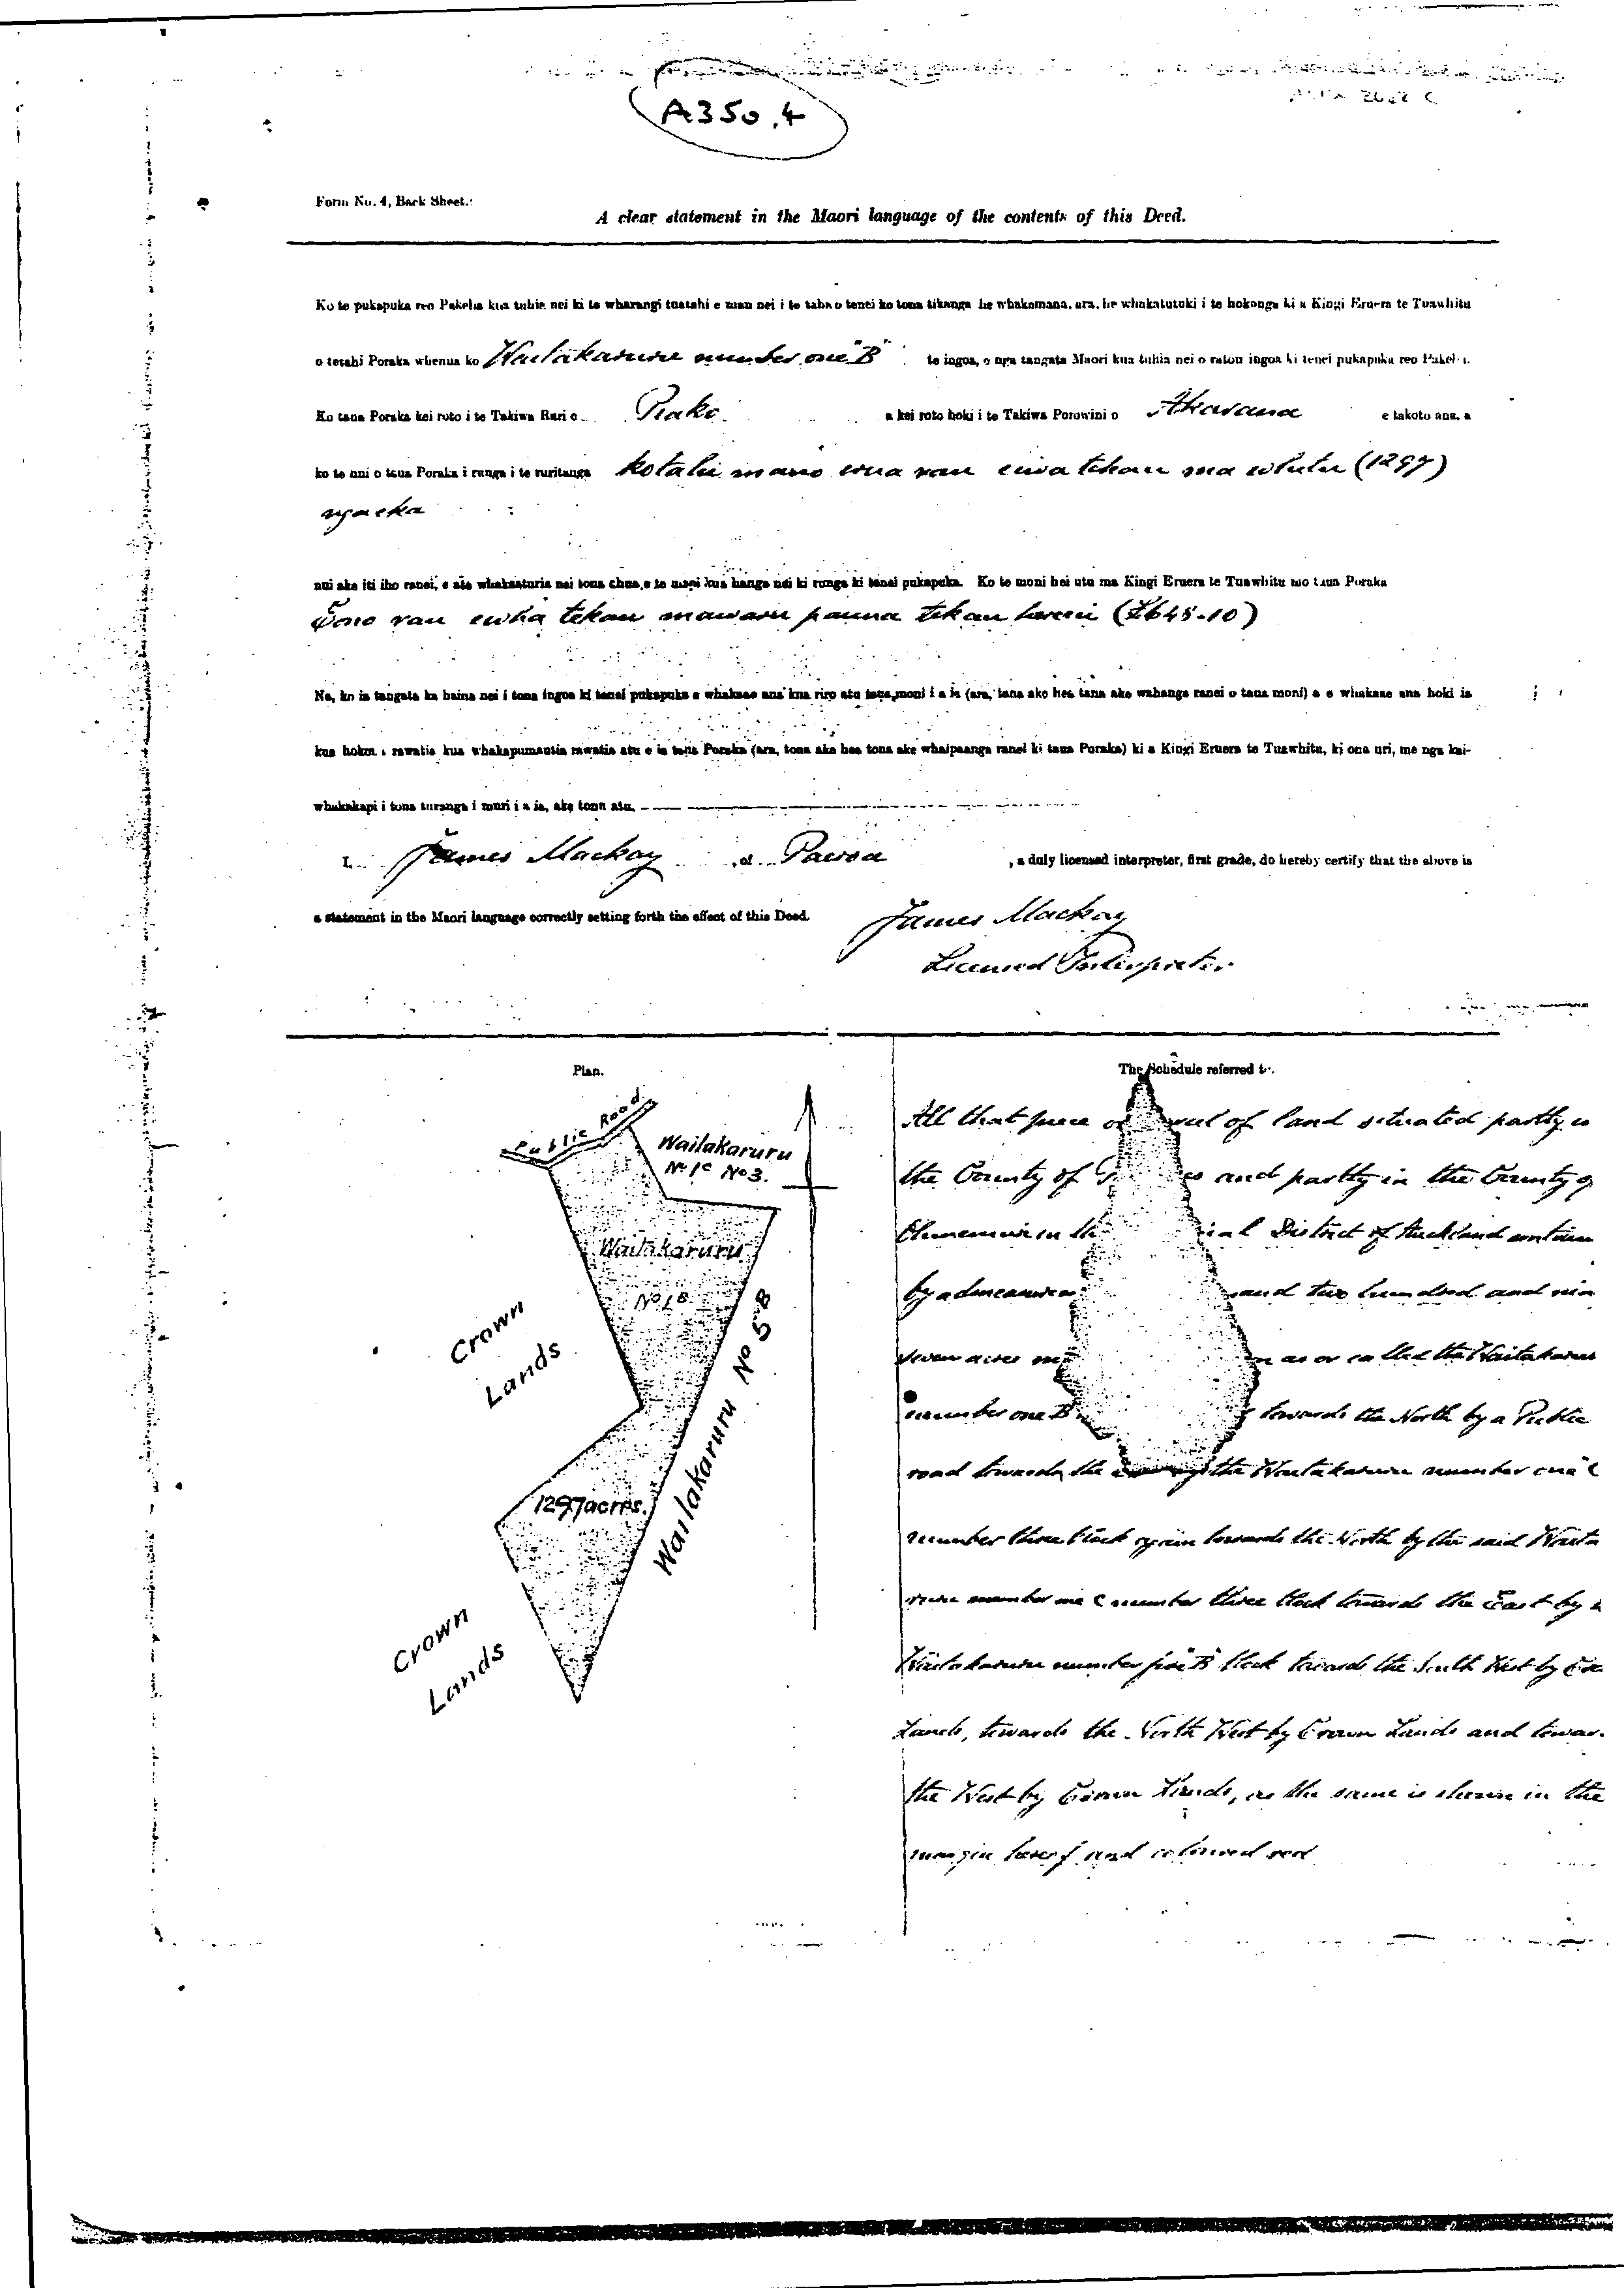 A350.4
Form No. 4, Back Sheet.
A clear statement in the Maori language of the contents of this Deed.
Ko te pukapuka reo Pakeha kua tuhia nei ki te wharangi tuatahi e mau nei i te taha o tenei ko tona tikanga he whakamana, ara, he whakatutuki i te hokonga ki a Kingi Eruera te Tuawhitu
o tetahi Poraka whenua ko Waitakaruru number one "B" te ingoa, o nga tangata Maori kua tuhia nei o ratou ingoa ki tenei pukapuka reo Pakeha.
Ko taua Poraka kei roto i te Takiwa Ruri o Piako a kei roto hoki i te Takiwa Porowini o Akarana e takoto ana, a
ko te nui o taua Poraka i runga i te ruritanga kotahi mano erua rau eiwa tekau ma whitu (1297)
nga eka
nui ake iti iho ranei, e ata whakaaturia nei tona ahua, e te mapi kua hanga nei ki runga ki tenei pukapuka. Ko te moni hei utu ma Kingi Eruera te Tuawhitu mo taua Poraka
E ono rau ewha tekau mawaru pauna tekau hereni (£648.10)
Na, ko ia tangata ka haina nei i tona ingoa ki tenei pukapuka e whakaae ana kua riro atu taua moni i a ia (ara, tana ake hea tana ake wahanga ranei o taua moni) a e whakaae ana hoki ia
kua hokona rawatia kua whakapumautia rawatia atu e ia taua Poraka (ara, tona ake hea tona ake whaipaanga ranei ki taua Poraka) ki a Kingi Eruera te Tuawhitu, ki ona uri, me nga kai-
whakakapi i tona turanga i muri i a ia, ake tonu atu.
I, James Mackay of Paeroa, a duly licensed interpreter, first grade, do hereby certify that the above is
a statement in the Maori language correctly setting forth the effect of this Deed.
James Mackay
Licensed Interpreter
Plan.
Public Road
Waitakaruru
No 1c No 3.
Waitakaruru
No 1B
Crown
Lands
Waitakaruru No 5B
1297 acres.
Crown
Lands
The Schedule referred to.
All that piece or parcel of land situated partly
the County of and partly in the County
Ohinemuri in the District of Auckland
by admeasurement and two hundred and
seven acres as or called the Waitakaruru
number one B towards the North by a Public
road towards the the Waitakaruru number one C
number three block again towards the North by the said
number one C number three block towards the East by
Waitakaruru number five B block towards the South West by
Lands, towards the North West by Crown Lands and
the West by Crown Lands, as the same is shewn in the
margin hereof and coloured red